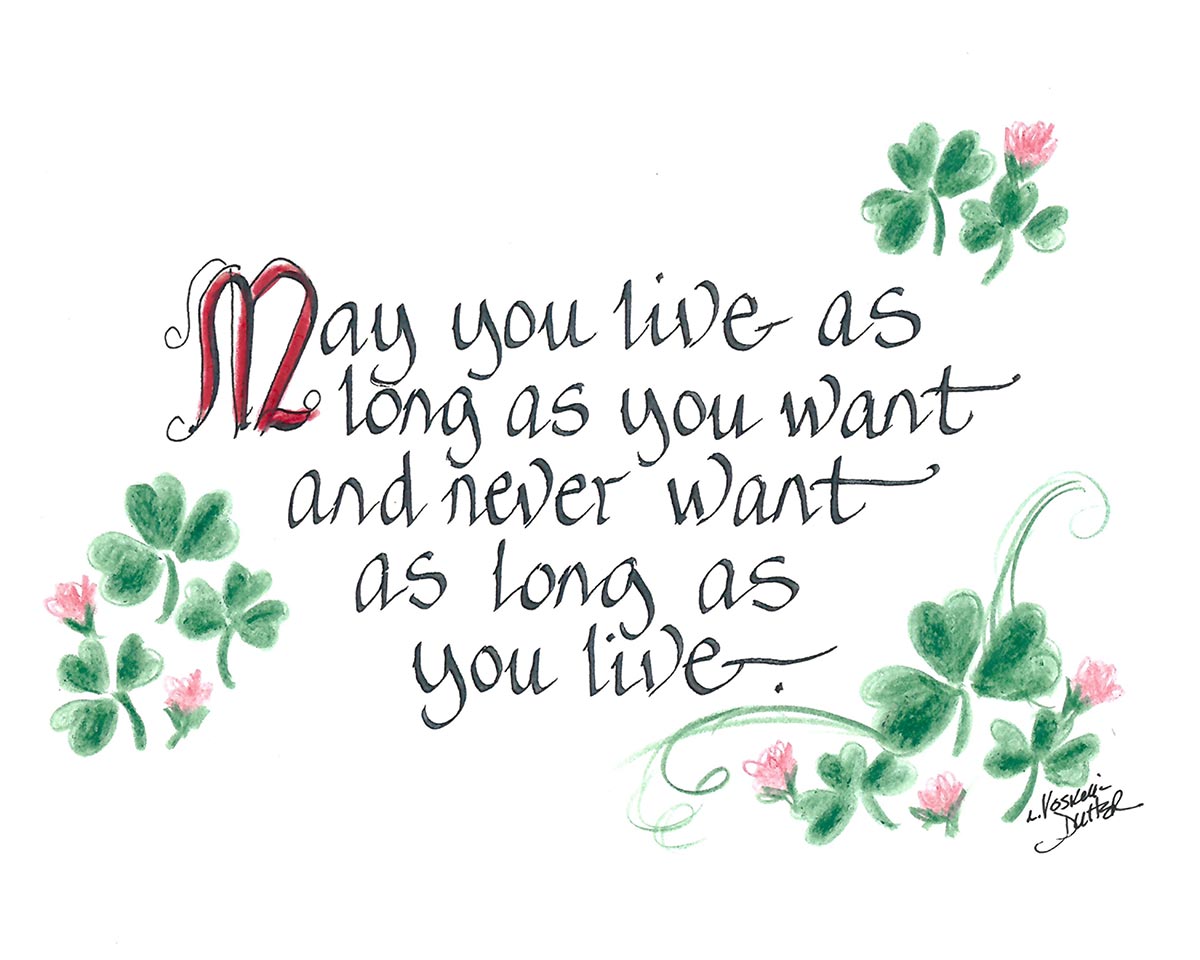 May you live as
long as you want
and never want
as long as
you live.